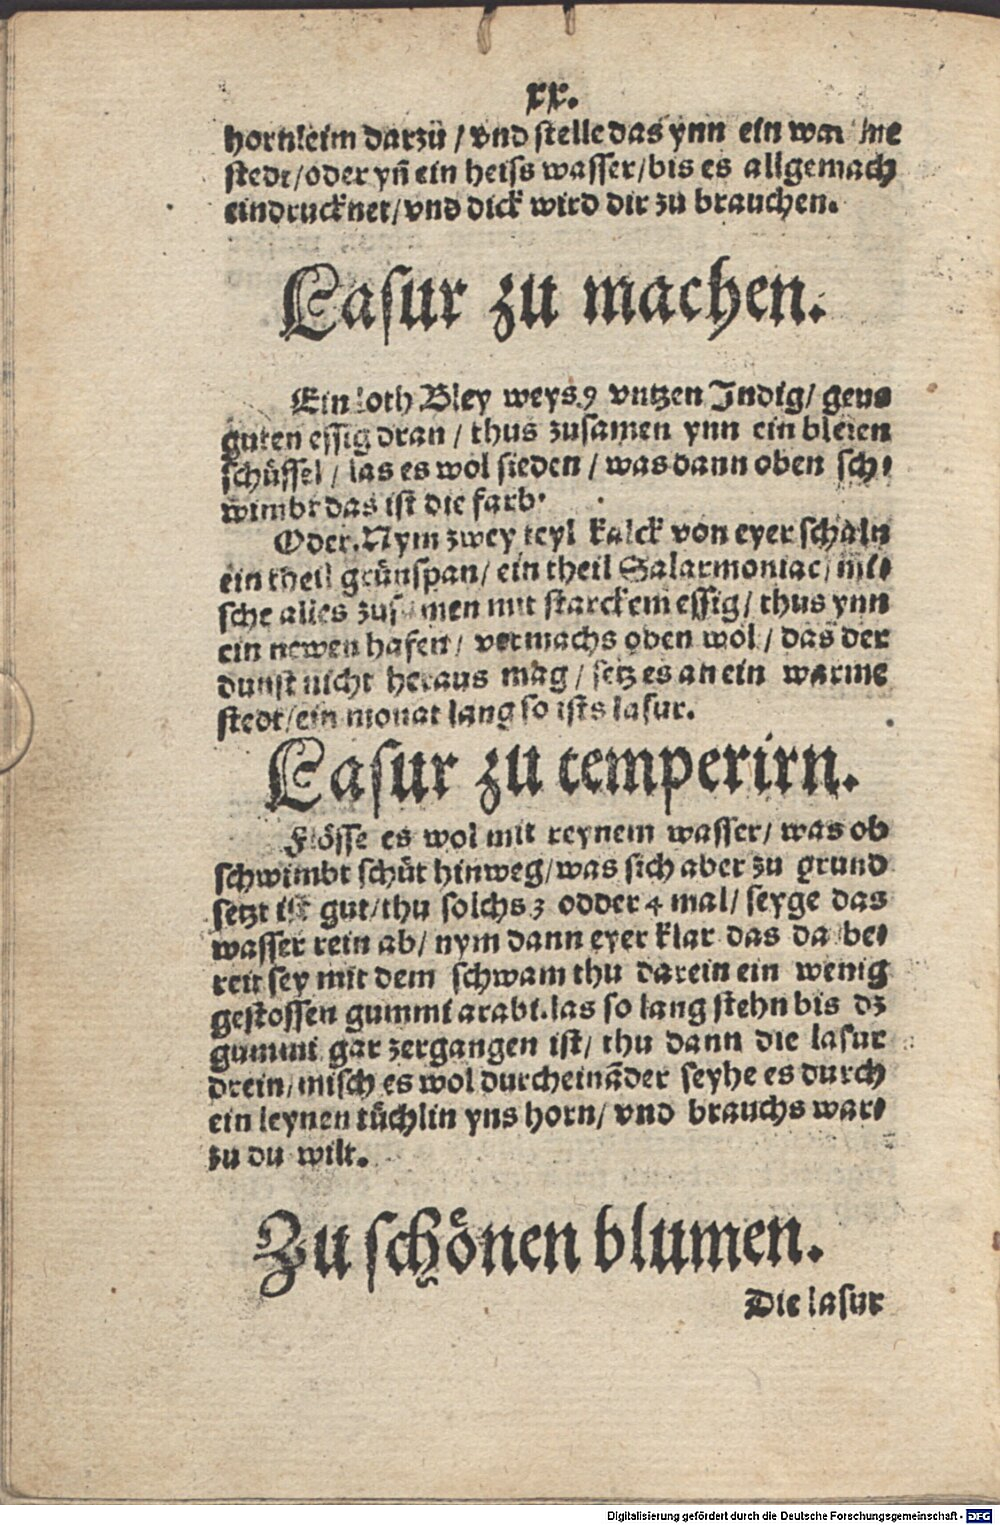 xx.
hornleim darzů / vnd stelle das ynn ein warme
stedt/oder yn̄ ein heiss wasser/bis es allgemach
eindrucknet/vnd dick wird dir zu brauchen.
Lasur zu machen.
Ein loth Bley weys.9 vntzen Indig/ geus
guten essig dran / thus zusamen ynn ein bleien
schüssel / las es wol sieden / was dann oben sch⸗
wimbt das ist die farb.
Oder. Nym zwey teyl kalck von eyer schaln
ein theil grünspan/ ein theil Salarmoniac/ mi⸗
sche alles zusamen mit starckem essig/ thus ynn
ein newen hafen/ vermachs oben wol/ das der
dunst nicht heraus mag / setz es an ein warme
stedt/ein monat lang so ists lasur.
Lasur zu temperirn.
Flösse es wol mit reynem wasser/ was ob
schwimbt schüt hinweg/was sich aber zu grund
setzt ist gut/thu solchs 3 odder 4 mal/ seyge das
wasser rein ab/ nym dann eyer klar das da be⸗
reit sey mit dem schwam thu darein ein wenig
gestossen gummi arabi.las so lang stehn bis dz
gummi gar zergangen ist/ thu dann die lasur
drein/misch es wol durcheināder seyhe es durch
ein leynen tüchlin yns horn/ vnd brauchs war⸗
zu du wilt.
Zu schönen blumen.
Die lasur
Digitalisierung gefördert durch die Deutsche Forschungsgemeinschaft - DFG